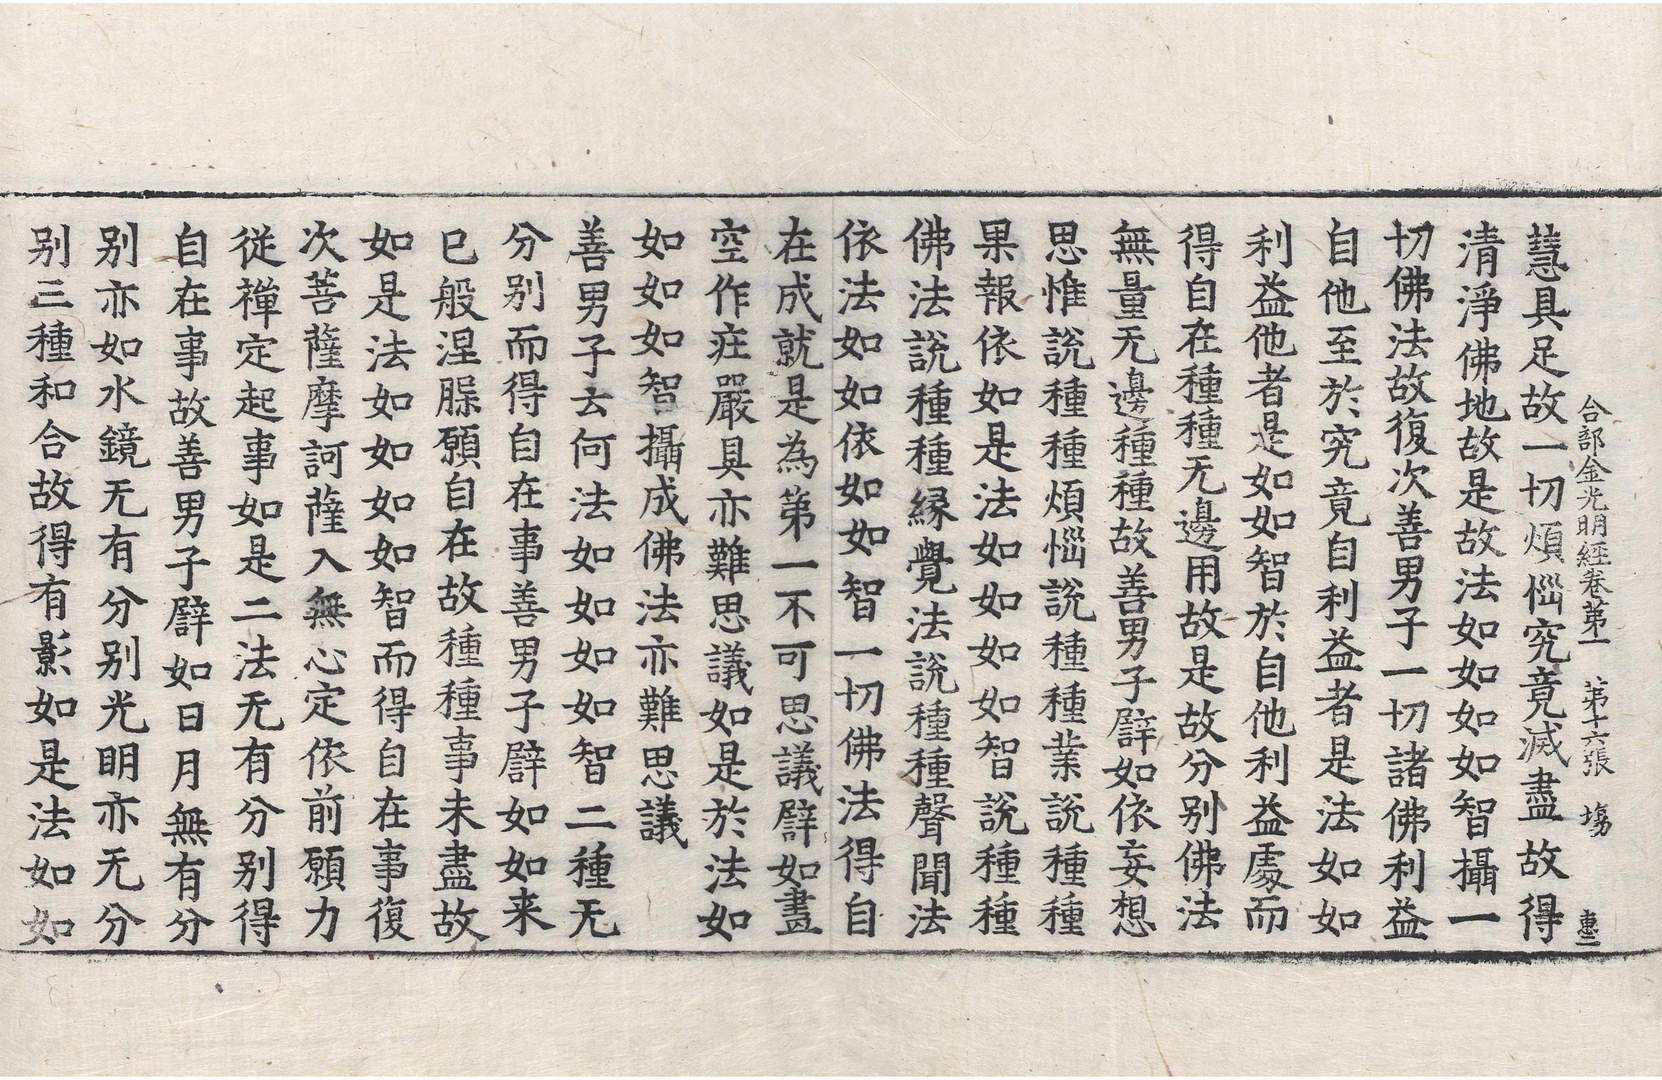 合部金光明經卷第一　第十六張　場　惠二
慧具足故一切煩惱究竟滅盡故得
清淨佛地故是故法如如如如智攝一
切佛法故復次善男子一切諸佛利益
自他至於究竟自利益者是法如如
利益他者是如如智於自他利益處而
得自在種種无邊用故是故分別佛法
無量无邊種種故善男子譬如依妄想
思惟說種種煩惱說種種業說種種
果報依如是法如如如如智說種種
佛法說種種緣覺法說種種聲聞法
依法如如依如如智一切佛法得自
在成就是為第一不可思議譬如畫
空作莊嚴具亦難思議如是於法如
如如如智攝成佛法亦難思議
善男子云何法如如如如智二種无
分別而得自在事善男子譬如如来
已般涅脲願自在故種種事未盡故
如是法如如如如智而得自在事復
次菩薩摩訶薩入無心定依前願力
從禪定起事如是二法无有分別得
自在事故善男子譬如日月無有分
別亦如水鏡无有分別光明亦无分
別三種和合故得有影如是法如如